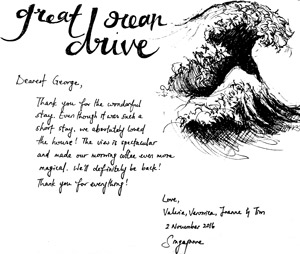 great ocean
drive
Dearest George,
Thank you for the wonderful
stay. Even though it was such a
short stay, we absolutely loved
the house! The view is spectacular
and made our morning coffee even more
magical. We'll definitely be back!
Thank you for everything!
Love,
Valerie, Veronica, Joanne & Tom
2 November 2016
Singapore